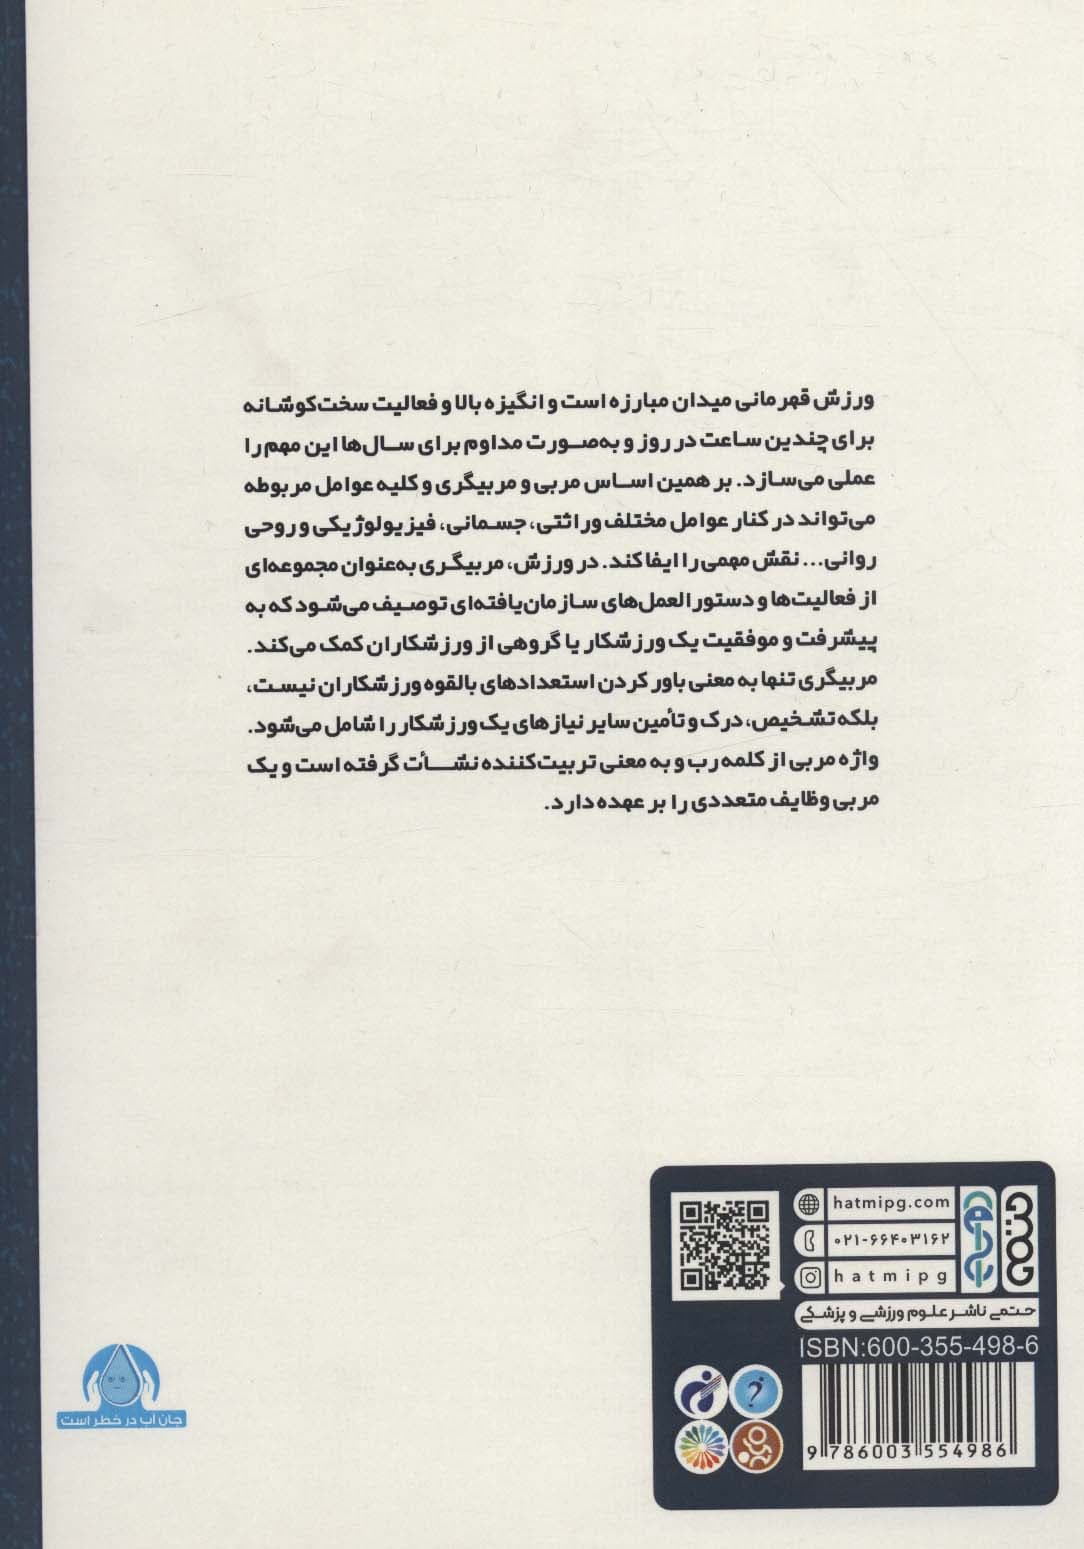 ورزش قهرمانی میدان مبارزه است و انگیزه بالا و فعالیت سخت‌کوشانه
برای چندین ساعت در روز و به‌صورت مداوم برای سال‌ها این مهم را
عملی می‌سازد. بر همین اساس مربی و مربیگری و کلیه عوامل مربوطه
می‌تواند در کنار عوامل مختلف وراثتی، جسمانی، فیزیولوژیکی و روحی
روانی... نقش مهمی را ایفا کند. در ورزش، مربیگری به‌عنوان مجموعه‌ای
از فعالیت‌ها و دستورالعمل‌های سازمان‌یافته‌ای توصیف می‌شود که به
پیشرفت و موفقیت یک ورزشکار یا گروهی از ورزشکاران کمک می‌کند.
مربیگری تنها به معنی باور کردن استعدادهای بالقوه ورزشکاران نیست،
بلکه تشخیص، درک و تأمین سایر نیازهای یک ورزشکار را شامل می‌شود.
واژه مربی از کلمه رب و به معنی تربیت‌کننده نشأت گرفته است و یک
مربی وظایف متعددی را بر عهده دارد.
hatmipg.com
۰۲۱-۶۶۴۰۳۱۶۲
hatmipg
حتمی
حتمی ناشر علوم ورزشی و پزشکی
ISBN:600-355-498-6
9 786003 554986
جان آب در خطر است